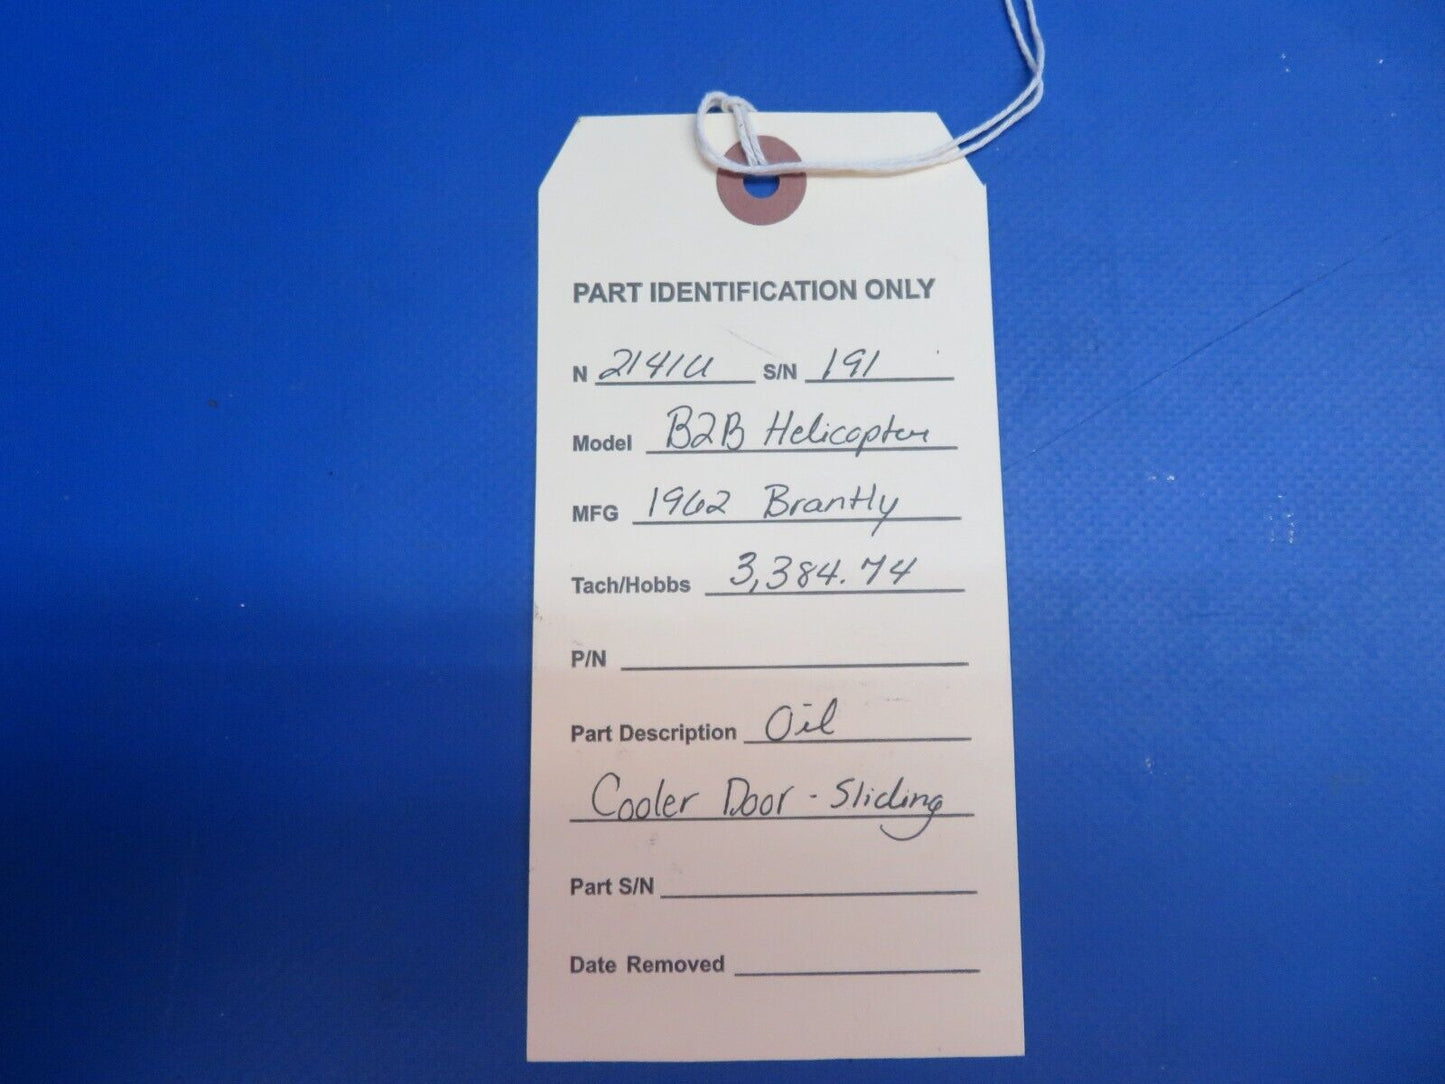 PART IDENTIFICATION ONLY
N 2141U S/N 191
Model B2B Helicopter
MFG 1962 Brantly
Tach/Hobbs 3,384.74
P/N
Part Description Oil
Cooler Door - Sliding
Part S/N
Date Removed